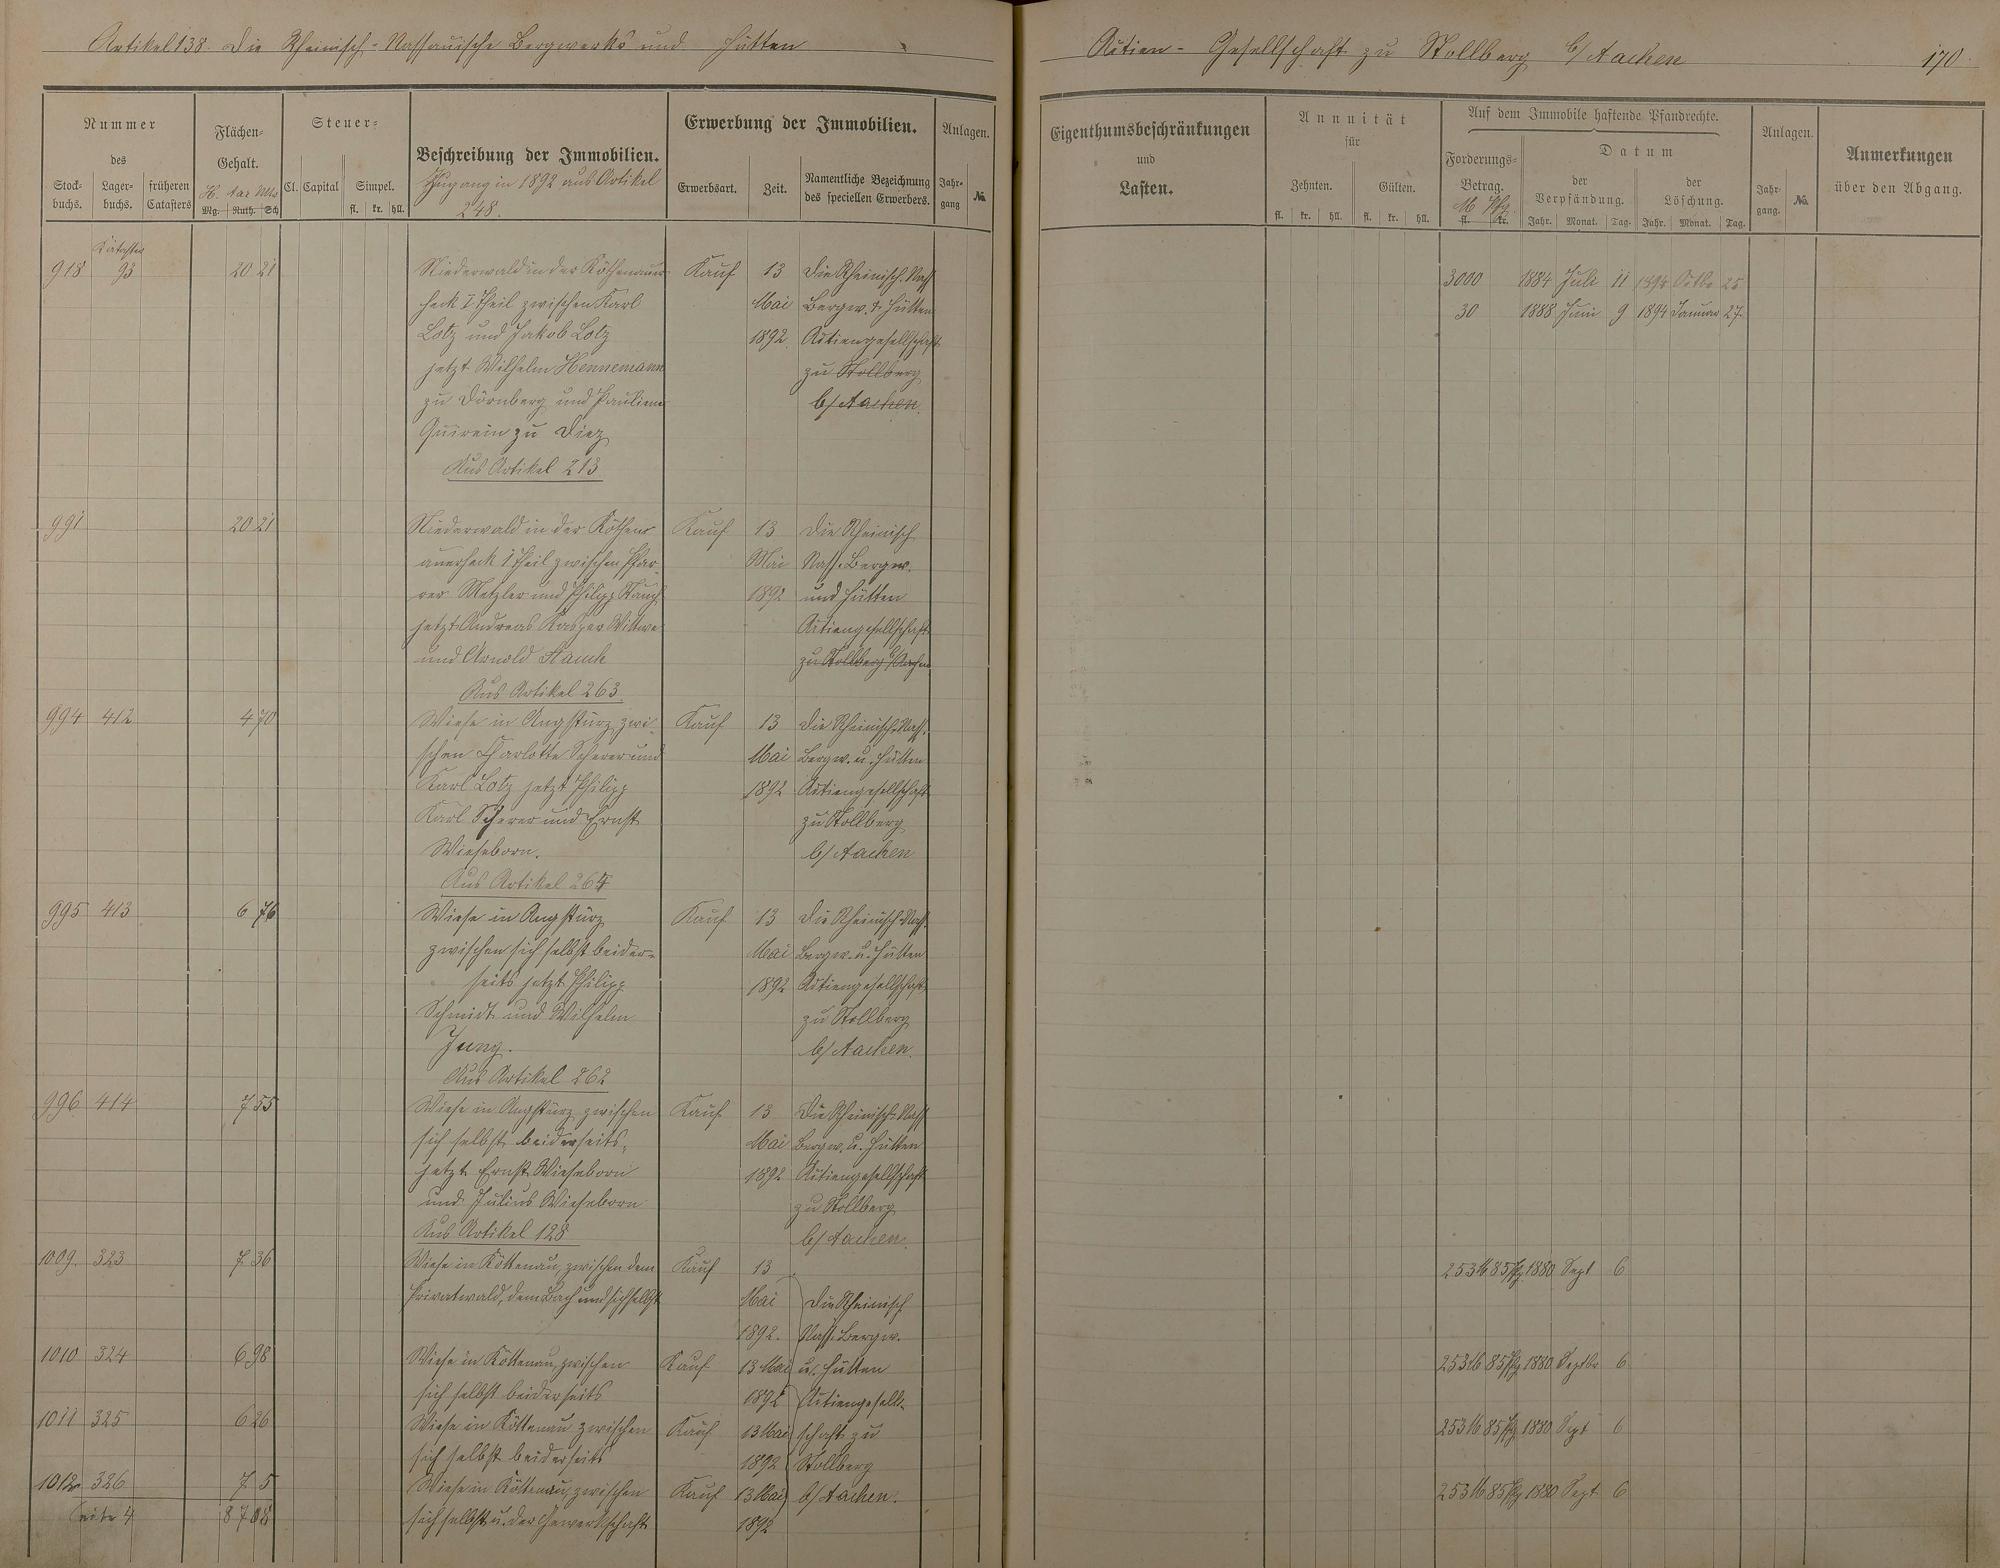 Artikel 138. Die Rheinisch-Nassauische Bergwerks und Hütten
Actien-Gesellschaft zu Stollberg b/Aachen 170
Nummer
des
Stock-buchs. Lager-buchs. früheren Catasters
Flächen-Gehalt.
H. Aar Mtr
Mg. Ruth. Sch
Steuer-
Cl. Capital Simpel.
fl. kr. hll.
Beschreibung der Immobilien.
Zugang in 1892 aus Artikel
248.
Erwerbung der Immobilien.
Erwerbsart. Zeit. Namentliche Bezeichnung des speciellen Erwerbers.
Anlagen.
Jahr-gang No.
Eigenthumsbeschränkungen
und
Lasten.
Annuität
für
Zehnten. Gülten.
fl. kr. hll. fl. kr. hll.
Auf dem Immobile haftende Pfandrechte.
Forderungs-Betrag.
M Pfg.
fl. kr.
Datum
der Verpfändung. der Löschung.
Jahr. Monat. Tag. Jahr. Monat. Tag.
Anlagen.
Jahr-gang. No.
Anmerkungen
über den Abgang.
Kataster
918 93 20 21 Niederwald in der Köthenauer- Kauf 13 Die Rheinisch. Nass 3000 1884 Juli 11 1894 Octbr 25
heck 1 Theil zwischen Karl Mai Bergw. & Hütten 30 1888 Juni 9 1894 Januar 27.
Lotz und Jakob Lotz 1892. Actiengesellschaft
jetzt Wilhelm Hennemann zu Stollberg
zu Dörnberg und Pauline b/Aachen.
Quirein zu Diez
Aus Artikel 213
991 20 21 Niederwald in der Köthen- Kauf 13 Die Rheinisch
auerheck 1 Theil zwischen Pfar- Mai Nass. Bergw.
rer Metzler und Philipp Stauch 1892 und Hütten
jetzt Andreas Kasper Wittwe Actiengesellschaft
und Arnold Stauch zu Stollberg b/Aachen
Aus Artikel 263
994 412 4 70 Wiese in Angstürz zwi- Kauf 13 Die Rheinisch-Nass.
schen Charlotte Scherer und Mai Bergw. u. Hütten
Karl Lotz jetzt Philipp 1892 Actiengesellschaft
Karl Scherer und Ernst zu Stollberg
Wieseborn. b/Aachen
Aus Artikel 264
995 413 6 76 Wiese in Angstürz Kauf 13 Die Rheinisch-Nass.
zwischen sich selbst beider- Mai Bergw. u. Hütten
seits jetzt Philipp 1892 Actiengesellschaft
Schmidt und Wilhelm zu Stollberg
Jung. b/Aachen.
Aus Artikel 262
996 414 7 55 Wiese in Angstürz zwischen Kauf 13 Die Rheinisch-Nass
sich selbst beiderseits, Mai Bergw. u. Hütten
jetzt Ernst Wieseborn 1892 Actiengesellschaft
und Julius Wieseborn zu Stollberg
Aus Artikel 128 b/Aachen.
1009. 323 7 36 Wiese in Köttenau, zwischen dem Kauf 13 253 M 85 Pfg 1880 Sept 6
Privatwald, dem Bach und sich selbst Mai Die Rheinisch
1892. Nass. Bergw.
1010 324 6 98 Wiese in Köttenau, zwischen Kauf 13 Mai u. Hütten 253 M 85 Pfg 1880 Septbr 6
sich selbst beiderseits 1892 Actiengesell-
1011 325 6 26 Wiese in Köttenau zwischen Kauf 13 Mai schaft zu 253 M 85 Pfg 1880 Sept 6
sich selbst beiderseits 1892 Stollberg
1012 326 7 5 Wiese in Köttenau, zwischen Kauf 13 Mai b/Aachen. 253 M 85 Pfg 1880 Sept 6
Seite 4 87 08 sich selbst u. der Gewerkschaft 1892